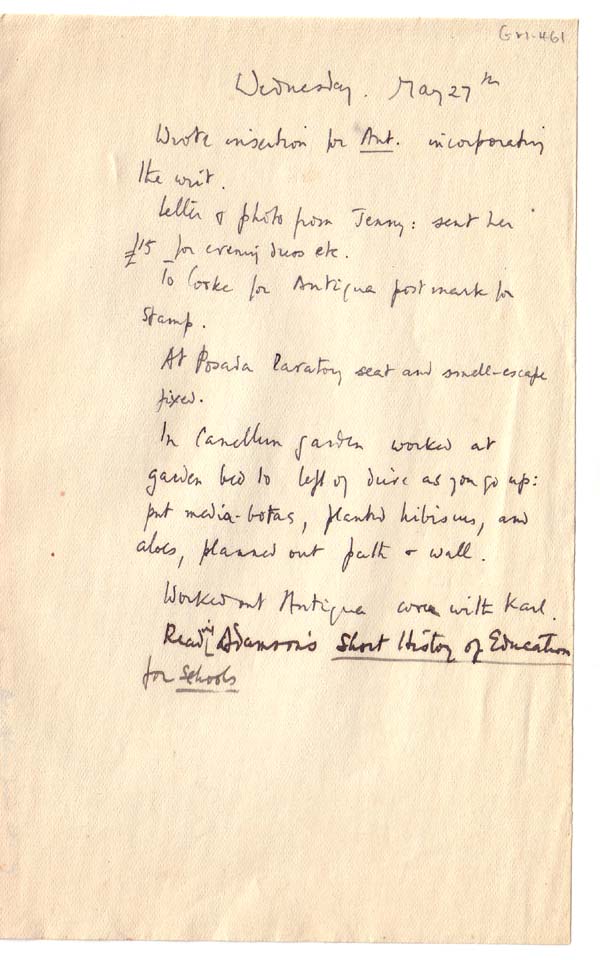 GRI-461
Wednesday. May 27th
Wrote insertion for Ant. incorporating
the writ.
Letter & photo from Jenny: sent her
£15 for evening dress etc.
To Cooke for Antigua postmark for
stamp.
At Posada lavatory seat and smell-escape
fixed.
In Canellun garden worked at
garden bed to left of drive as you go up:
put media-botas, planted hibiscus, and
aloes, planned out path & wall.
Worked out Antigua cover with Karl.
Reading Adamson's Short History of Education
for Schools